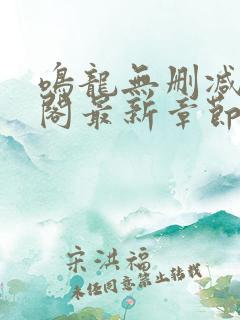 鳴龍無删减
閣最新章節
宋洪福
未经同意禁止转载